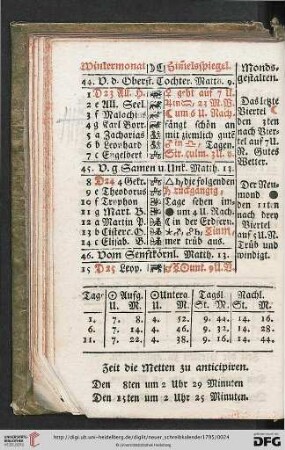 Wintermonat
Himelsspiegel.
Monds-
gestalten.
44. V. d. Oberst. Tochter. Matth. 9.
1 D 23 All. H.
2 e All. Seel
3 f Malachias
4 g Carl Borr. fängt schön an
5 a Zacharias mit ziemlich gute
6 b Leonhard Tagen.
7 c Engelbert
Das letzte
Viertel
den 3ten
nach Vier-
tel auf 7 U.
N. Gutes
Wetter.
45. V. g Samen u. Unk. Matth. 13.
8 D 24 4 Gekr. die folgenden
9 e Theodorus
10 f Tryphon Tage sehen im
11 g Mart. B. um 4 U. Nach.
12 a Martin P. in der Erdiern.
13 b
14 c Elisab. B. mer trüb aus.
Der Neu-
mond
den 11ten
nach drey
Viertel
auf 3 U. N.
Trüb und
windigt.
46. Vom Senfkörnl. Matth. 13.
15 D 25 Leop.
Tag Aufg. Unterg. Tagsl. Nachtl.
U. M. U. M. St. M. St. M.
1. 7. 8. 4. 52. 9. 44. 14. 16.
6. 7. 14. 4. 46. 9. 32. 14. 28.
11. 7. 22. 4. 38. 9. 16. 14. 44.
Zeit die Metten zu anticipiren.
Den 8ten um 2 Uhr 29 Minuten
Den 15ten um 2 Uhr 25 Minuten.
http://digi.ub.uni-heidelberg.de/diglit/neuer_schreibkalender1795/0024
© Universitätsbibliothek Heidelberg
gefördert durch die
DFG